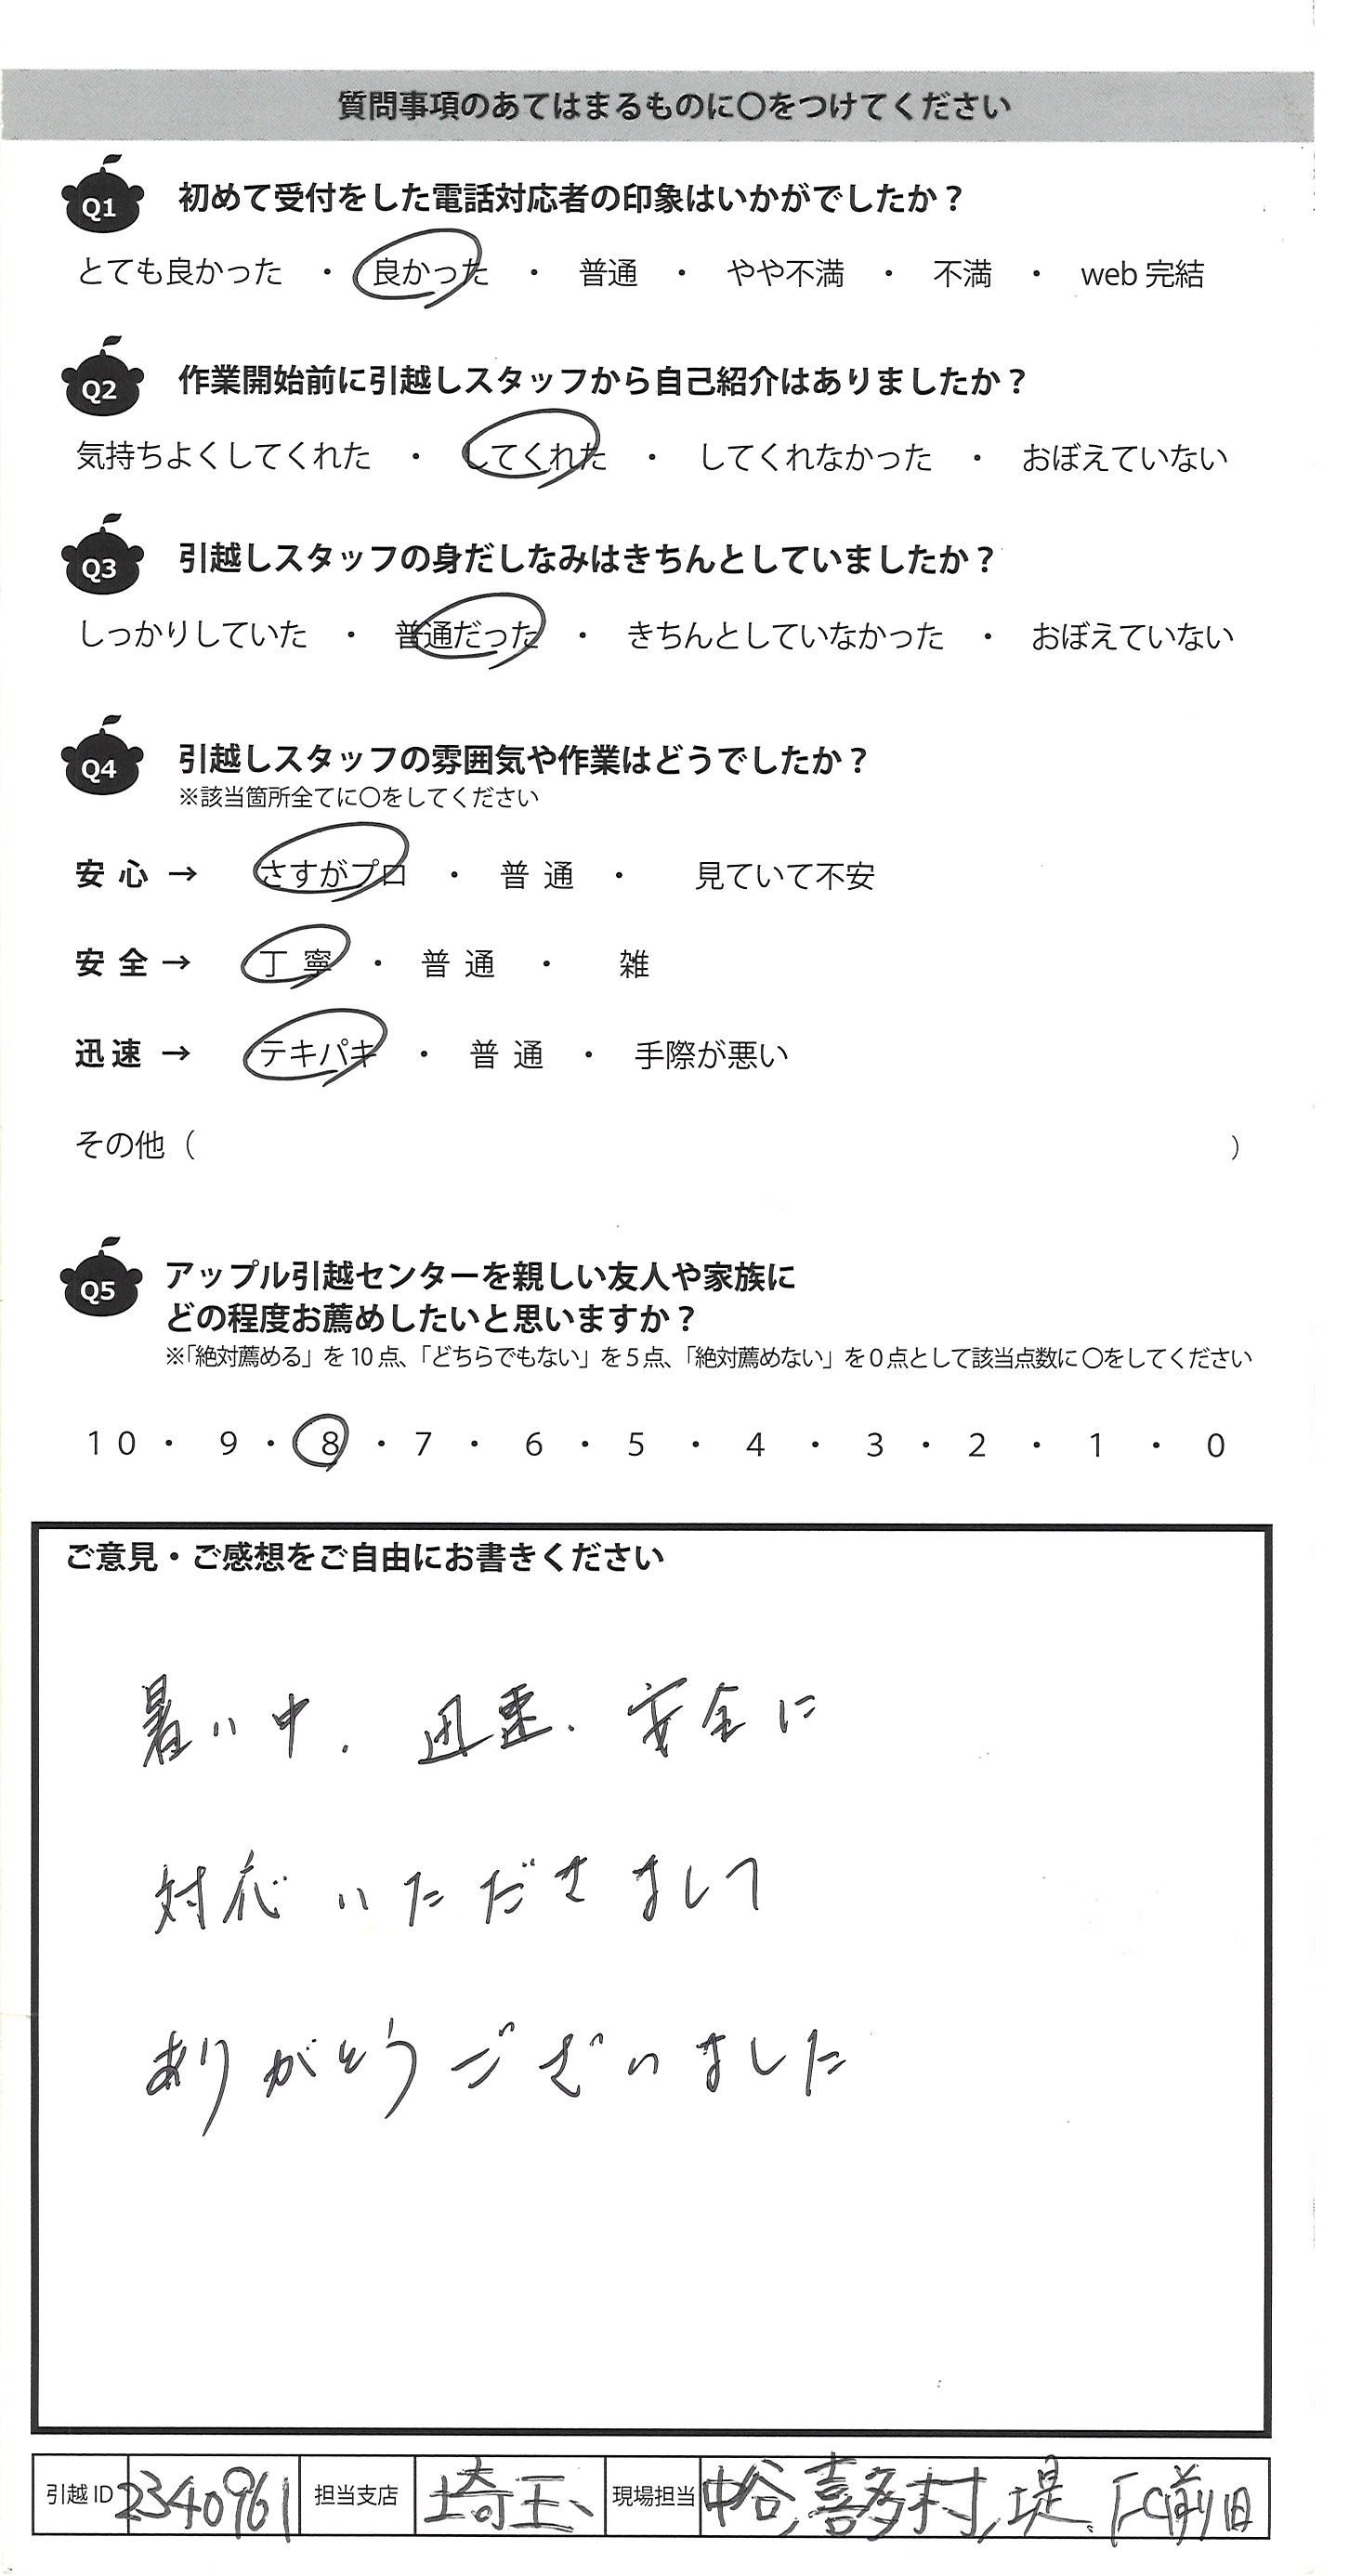 質問事項のあてはまるものに〇をつけてください
Q1 初めて受付をした電話対応者の印象はいかがでしたか？
とても良かった ・ 良かった ・ 普通 ・ やや不満 ・ 不満 ・ web 完結
Q2 作業開始前に引越しスタッフから自己紹介はありましたか？
気持ちよくしてくれた ・ してくれた ・ してくれなかった ・ おぼえていない
Q3 引越しスタッフの身だしなみはきちんとしていましたか？
しっかりしていた ・ 普通だった ・ きちんとしていなかった ・ おぼえていない
Q4 引越しスタッフの雰囲気や作業はどうでしたか？
※該当箇所全てに〇をしてください
安心 → さすがプロ ・ 普通 ・ 見ていて不安
安全 → 丁寧 ・ 普通 ・ 雑
迅速 → テキパキ ・ 普通 ・ 手際が悪い
その他（ ）
Q5 アップル引越センターを親しい友人や家族に
どの程度お薦めしたいと思いますか？
※「絶対薦める」を10点、「どちらでもない」を5点、「絶対薦めない」を0点として該当点数に〇をしてください
10 ・ 9 ・ 8 ・ 7 ・ 6 ・ 5 ・ 4 ・ 3 ・ 2 ・ 1 ・ 0
ご意見・ご感想をご自由にお書きください
暑い中、迅速、安全に
対応いただきまして
ありがとうございました
引越ID 2340961 担当支店 埼玉 現場担当 中谷,喜多村,堤、